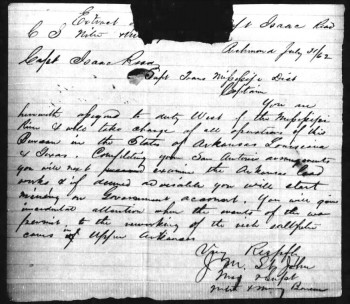 Extract Capt Isaac Read
C S Nitre
Richmond July 31/62
Capt Isaac Read
Supt Trans Mississippi Dist
Captain
You are
herewith assigned to duty West of the Mississippi
River & will take charge of all operations of this
Bureau in the States of Arkansas Louisiana
& Texas. Completing your San Antonio arrangements
you will next examine the Arkansas Lead
works & if deemed advisable you will start
mining on Government account. You will give
immediate attention when the events of the war
permit to the reworking of the rich saltpetre
caves in Upper Arkansas
Very Respfly
J. M. St John
Maj & Supt
Nitre & Mining Bureau